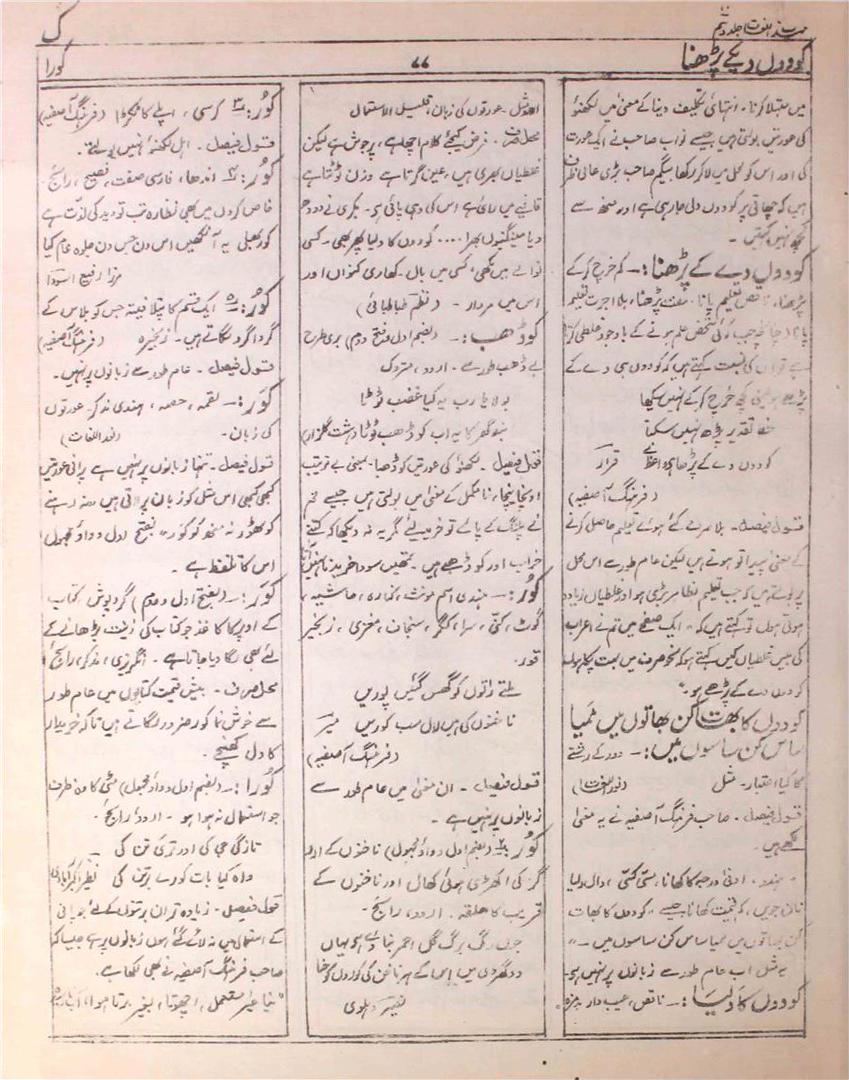 مہذب اللغات جلد دہم
ک
کودوں دیکے پڑھنا
۷۷
کورا
میں مبتلا کرنا۔ انتہائی تکلیف دینا کے معنی میں لکھنؤ
کی عورتیں بولتی ہیں جیسے نواب صاحب نے ایک عورت
کی اور اس کو محل میں لا کر رکھا بیگم صاحب بڑی عالی ظرف
ہیں کہ چھاتی پر کودوں دلی جا رہی ہے اور منھ سے
کچھ نہیں کہتیں۔
کودوں دے کے پڑھنا:۔ کم خرچ کر کے
پڑھنا، ناقص تعلیم پانا۔ مفت پڑھنا، بلا اجرت تعلیم
پانا، چنانچہ جب کوئی شخص علم ہونے کے باوجود غلطی کرتا
ہے تو اس کی نسبت کہتے ہیں کہ کودوں ہی دے کے
پڑھے ہو یعنی کچھ خرچ کر کے نہیں سیکھا
خط تقدیر پڑھ نہیں سکتا
کودوں دے کے پڑھا ہے واعظ قرار
(فرہنگ آصفیہ)
قول فیصل۔ بلا صرف کئے ہوئے تعلیم حاصل کرنے
کے معنی پیدا تو ہوتے ہیں لیکن عام طور سے اس محل
پر بولتے ہیں کہ جب تعلیم بظاہر بڑی ہو اور غلطیاں زیادہ
ہوتی ہوں تو کہتے ہیں کہ "ایک صفحے میں تم نے اعراب
کی بیس غلطیاں کیں کہتے ہو کہ نحو صرف میں بہت پکا ہوں
کودوں دے کے پڑھے ہو"
کودوں کا بھات کن بھاتوں میں ممیا
ساس کن ساسوں میں:۔ دور کے رشتے
کا کیا اعتبار۔ مثل (نور اللغات)
قول فیصل۔ صاحب فرہنگ آصفیہ نے یہ معنی
لکھے ہیں۔
۔ ہندو۔ ادنیٰ درجہ کا کھانا، دال دلیا
نان جویں، کم قیمت کھانا جیسے "کودوں کا بھات
کن بھاتوں میں ممیا ساس کن ساسوں میں۔"
یہ مثل اب عام طور سے زبانوں پر نہیں ہے۔
کودوں کا دلیا:۔ ناقص، عیب دار، بد مزہ
المثل۔ عورتوں کی زبان، قلیل الاستعمال
محل صرف۔ فرض کیجئے کلام اچھا ہے، پرجوش ہے لیکن
غلطیاں بھری ہیں، عین گرتا ہے وزن ٹوٹتا ہے
قافیے میں اس کی وہی پائی ہے۔ بکری نے دودھ
دیا مینگنیوں بھرا .... کودوں کا دلیا پھر بھی۔ کسی
نوالے میں مکھی، کسی میں بال۔ کھاری کنواں اور
اس میں مردار۔ (نظم طباطبائی)
کوڈھب:۔ (بضم اول و فتح دوم) بری طرح
بے ڈھب طور سے۔ اردو، متروک
بولا یا رب یہ کیا غضب ٹوٹا
گھر کا یہ اب کوڈھب ٹوٹا
قول فیصل۔ لکھنؤ کی عورتیں کوڈھبا۔ بمعنی بے ترتیب
اونچا نیچا، نامکمل کے معنی میں بولتی ہیں جیسے تم
نے پلنگ کے پائے تو خرید لئے مگر یہ نہ دیکھا کہ کتنے
خراب اور کوڈھبے ہیں۔ تمھیں سودا خریدنا نہیں آتا
کور:۔ ہندی اسم مونث، کنارہ، حاشیہ،
گوٹ، کنی، سرا، کگر، سنجاف، مغزی، زنجیر
قور۔
ملتے ملتوں کو گھس گئیں پوریں
ناخنوں کی ہیں لال سب کوریں میر
(فرہنگ آصفیہ)
قول فیصل۔ ان معنی میں عام طور سے
زبانوں پر نہیں ہے۔
کور ۲:۔ (بضم اول و واؤ مجہول) ناخنوں کے ادھر
ادھر کی اکھڑی ہوئی کھال اور ناخنوں کے
قریب کا حلقہ۔ اردو، رائج۔
جوں رنگ برگ گل احمر بنا دے ہے یہاں
دو گھڑی میں اس کے ہر ناخن کی کوروں کو حنا
نصیر دہلوی
کور ۳: کرسی، اپلے کا ٹکڑا (فرہنگ آصفیہ)
قول فیصل۔ اہل لکھنؤ نہیں بولتے۔
کور ۴: اندھا، فارسی صفت، فصیح، رائج۔
خاص کر دوں میں بھی نظارہ تب تو دید کی لذت ہے
کور بھلی یہ آنکھیں اس دن جس دن جلوہ عام کیا
مرزا رفیع السودا
کور: ۵ ایک قسم کا پتلا فیتہ جس کو پلاس کے
گرداگرد لگاتے ہیں۔ زنجیرہ (فرہنگ آصفیہ)
قول فیصل۔ عام طور سے زبانوں پر نہیں۔
کور:۔ لقمہ، حصہ، ہندی مذکر، عورتوں
کی زبان۔ (نور اللغات)
قول فیصل۔ تنہا زبانوں پر نہیں ہے پرانی عورتیں
کبھی کبھی اس مثل کو زبان پر لاتی ہیں "نہ رہنے
کو ٹھور نہ منھ کو کور" بفتح اول و واؤ مجہول
اس کا تلفظ ہے۔
کور:۔ (بفتح اول و دوم) گرد پوش، کتاب
کے اوپر کا کاغذ جو کتاب کی زینت بڑھانے کے
لئے بھی لگا دیا جاتا ہے۔ انگریزی، مذکر، رائج
محل صرف۔ بیش قیمت کتابوں میں عام طور
سے خوش نما کور ضرور لگاتے ہیں تاکہ خریدار
کا دل کھنچے۔
کورا:۔ (بضم اول و واؤ مجہول) مٹی کا وہ ظرف
جو استعمال نہ ہوا ہو۔ اردو، رائج۔
تازگی جی کی اور تری تن کی
واہ کیا بات کورے برتن کی نظیر اکبر آبادی
قول فیصل۔ زیادہ تر ان برتنوں کے لئے جو پانی
کے استعمال میں نہ لائے گئے ہوں زبانوں پر ہے جیسا کہ
صاحب فرہنگ آصفیہ نے بھی لکھا ہے۔
"نیا غیر مستعمل، اچھوتا، بغیر برتا ہوا، آب نارسیدہ